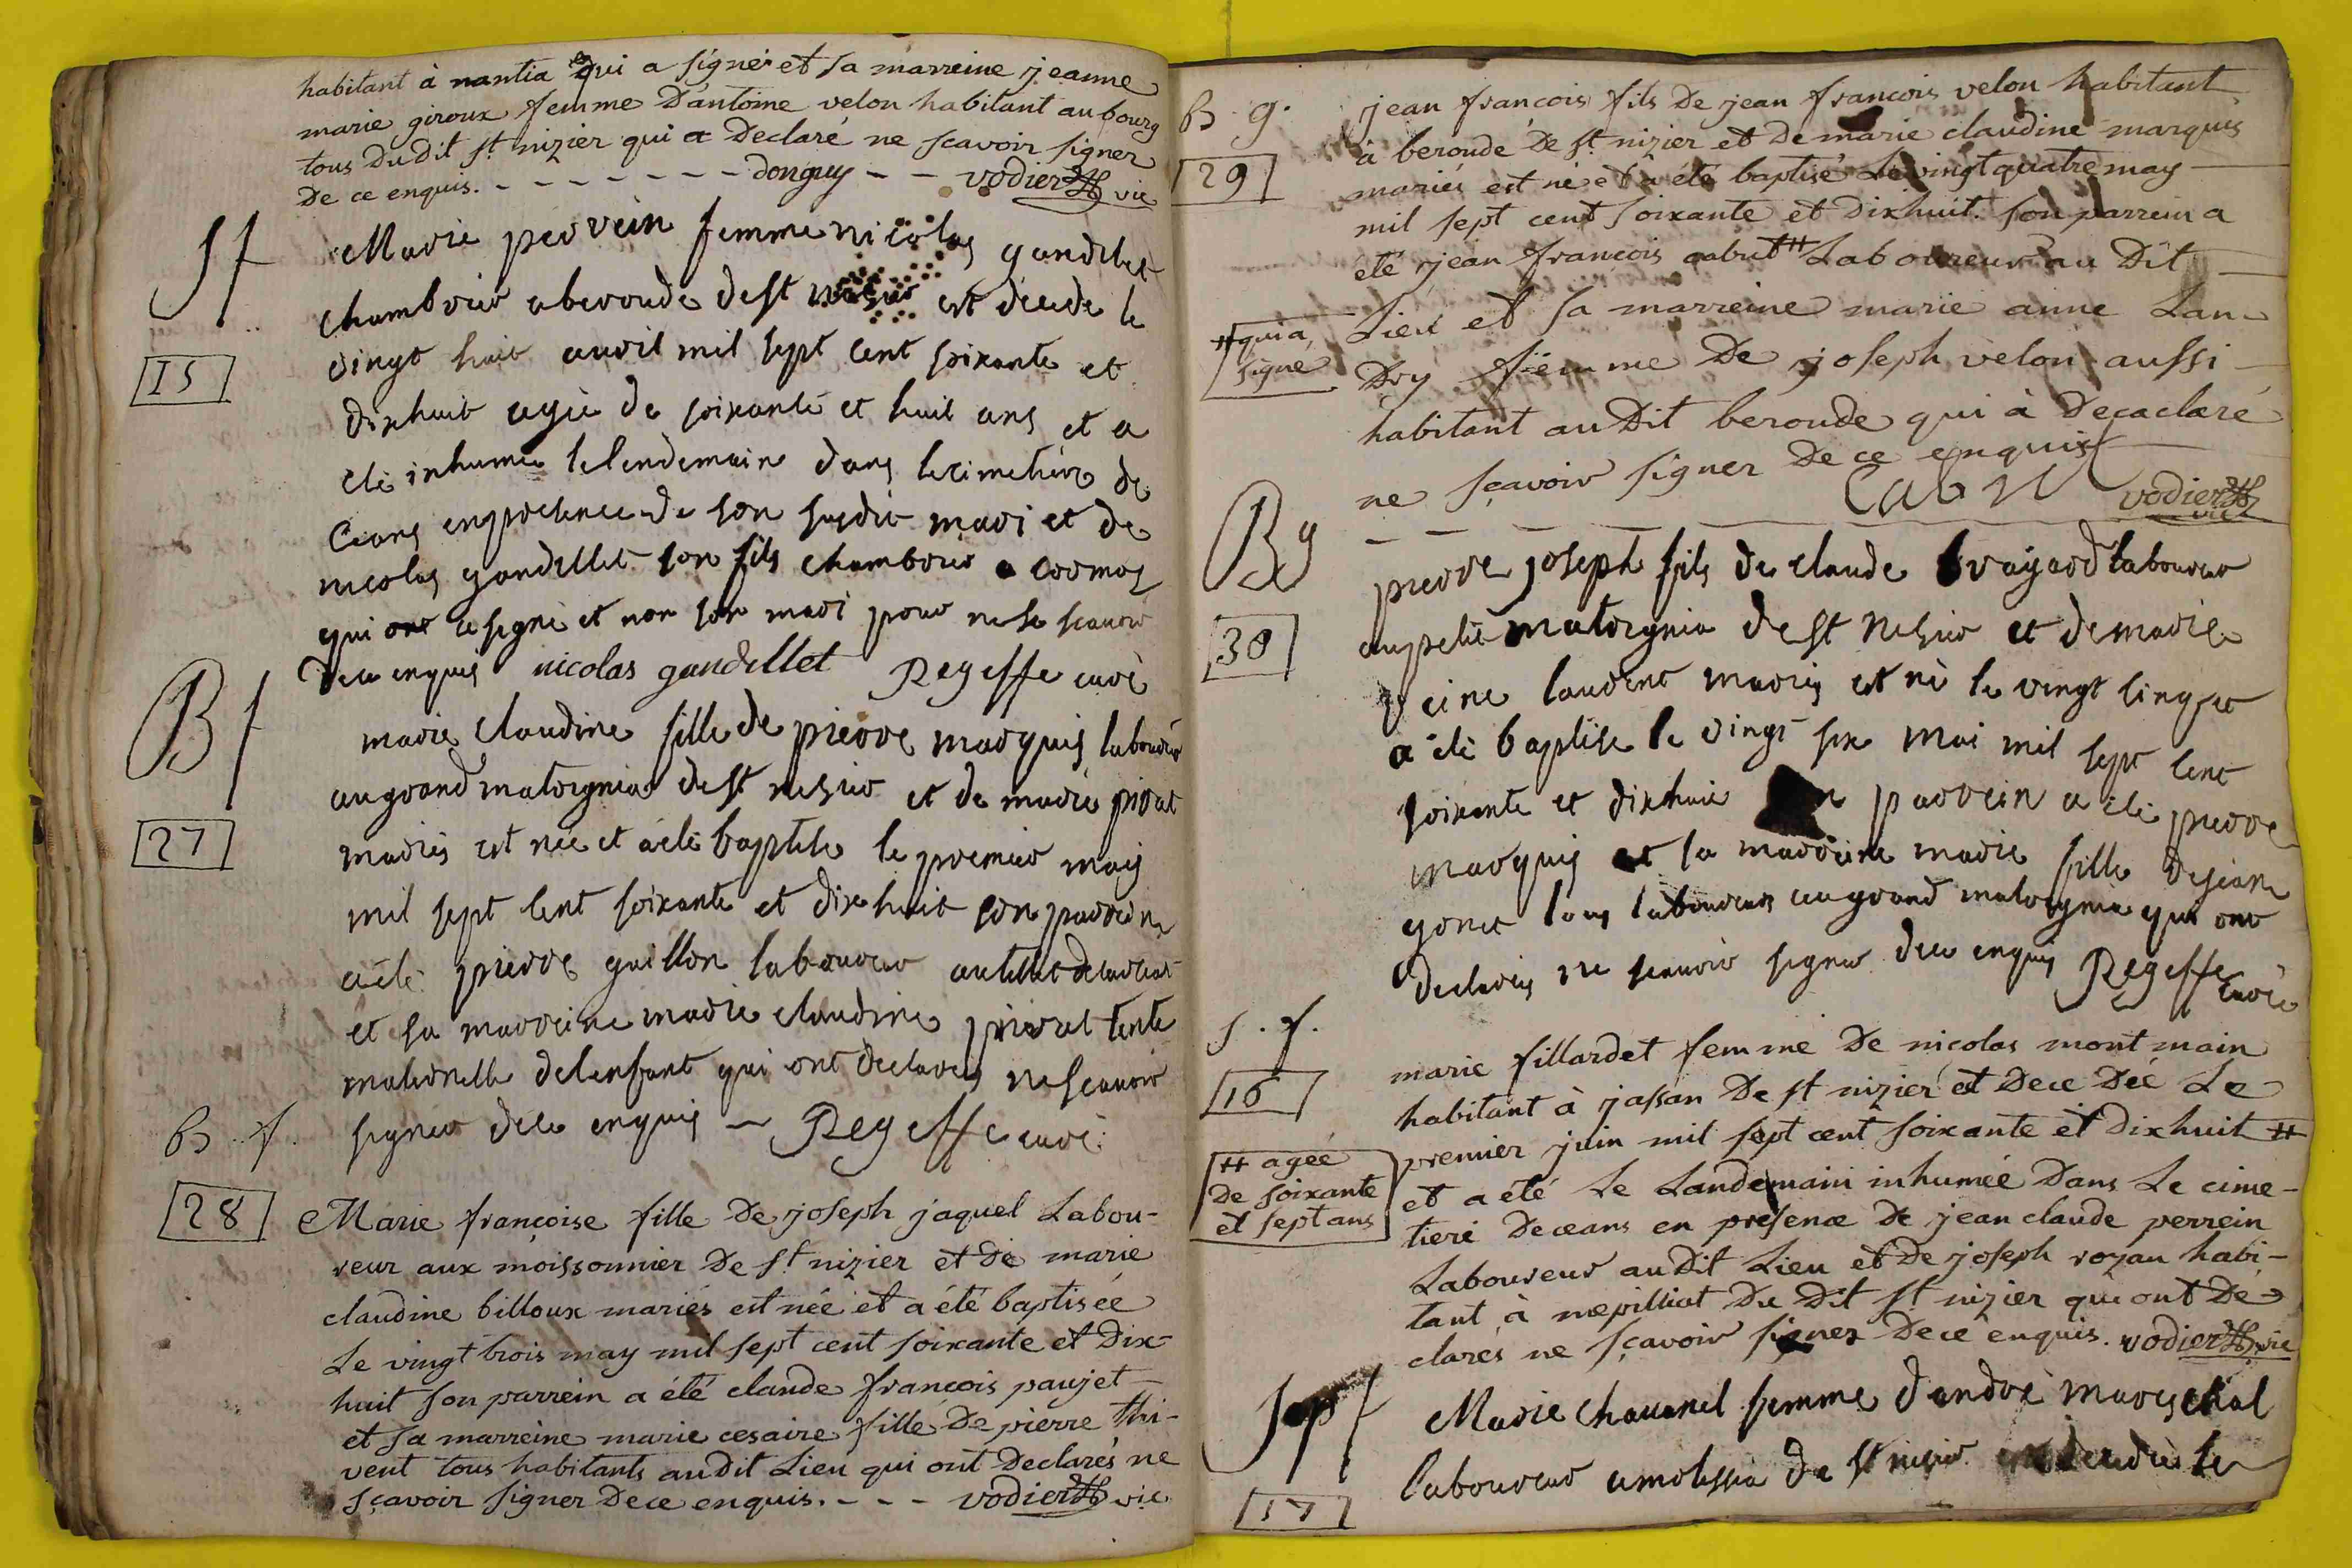 habitant à nantia qui a signé et sa marreine jeanne
marie giroux femme D'antoine velon habitant au bourg
tous Du Dit st. nizier qui a Declaré ne scavoir signer
De ce enquis. - - - - - - - - donguy - - vodier vic
Sf
Marie pervein femme nicolas gandelet
chambrier a beroude de st est decede le
vingt huit avril mil sept cent soixante et
15
dixhuit agée de soixante et huit ans et a
eté inhumée le lendemain dans le cimetiere de
ceans en presence de son susdit mari et de
nicolas gandellet son fils chambrier a cormoz
qui a signé et non son mari pour ne le scavoir
de ce enquis nicolas gandellet Regeffe curé
Bf
marie claudine fille de pierre marquis laboureur
au grand matregnia de st nesier et de marie privat
27
mariés est née et a eté baptisée le premier may
mil sept cent soixante et dixhuit son parrein
a eté pierre guillon laboureur
et sa marreine marie claudine privat tente
maternelle de lenfant qui ont declarés ne scavoir
B. f.
signer de ce enquis - Regeffe curé
28
Marie françoise fille De joseph jaquel Labou-
reur aux moissonnier De st. nizier et De marie
claudine billoux mariés est née et a été baptisée
Le vingt trois may mil sept cent soixante et Dix-
huit son parrein a été claude francois paujet
et sa marreine marie cesaire fille De pierre thi-
vent tous habitants audit Lieu qui ont Declarés ne
sçavoir signer De ce enquis. - - - vodier vic
B. g.
jean francois fils De jean francois velon habitant
à beroude De st. nizier et De marie claudine marquis
29
mariés est né et a été baptisé Le vingt quatre may
mil sept cent soixante et Dixhuit. son parrein a
été jean françois cabut # Laboureur au Dit
# qui a
signé
Lieu et sa marreine marie anne Lan-
Dry femme De joseph velon aussi
habitant au Dit beroude qui à Decaclaré
ne sçavoir signer De ce enquis
Cabut vodier vic
Bg
pierre joseph fils de claude brayard laboureur
30
au petit matregnia de st nesier et de marie
reine laurent mariés est né le vingt cinq et
a eté baptisé le vingt six mai mil sept cent
soixante et dixhuit parrein a eté pierre
marquis et sa marreine marie fille de jean
gonet tous laboureurs au grand matregnia qui ont
declarés ne scavoir signer de ce enquis Regeffe curé
S. f.
16
marie fillardet femme De nicolas montmain
habitant à jassan De st nizier est Dece Dée Le
premier juin mil sept cent soixante et Dixhuit #
# agée
De soixante
et sept ans
et a eté Le Landemain inhumée Dans Le cime-
tiere De ceans en presence De jean claude perrein
Laboureur audit Lieu et De joseph rozan habi-
tant à mepilliat Du Dit st nizier qui ont Dé-
clarés ne sçavoir signer De ce enquis. vodier vic
Spf
Marie chavanel femme d'andré mareschal
17
laboureur a molissia de st nisier est decedée le